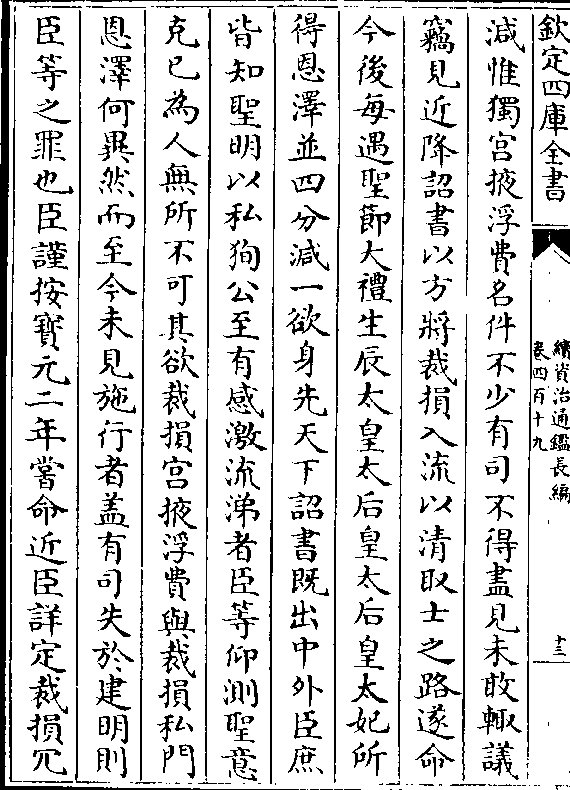 欽定四庫全書
續資治通鑑長編
卷四百十九
十三
減惟獨宫掖浮費名件不少有司不得盡見未敢輙議
竊見近降詔書以方將裁損入流以清取士之路遂命
今後每遇聖節大禮生辰太皇太后皇太后皇太妃所
得恩澤並四分減一欲身先天下詔書既出中外臣庶
皆知聖明以私狥公至有感激流涕者臣等仰測聖意
克已為人無所不可其欲裁損宫掖浮費與裁損私門
恩澤何異然而至今未見施行者盖有司失於建明則
臣等之罪也臣謹按寳元二年嘗命近臣詳定裁損冗